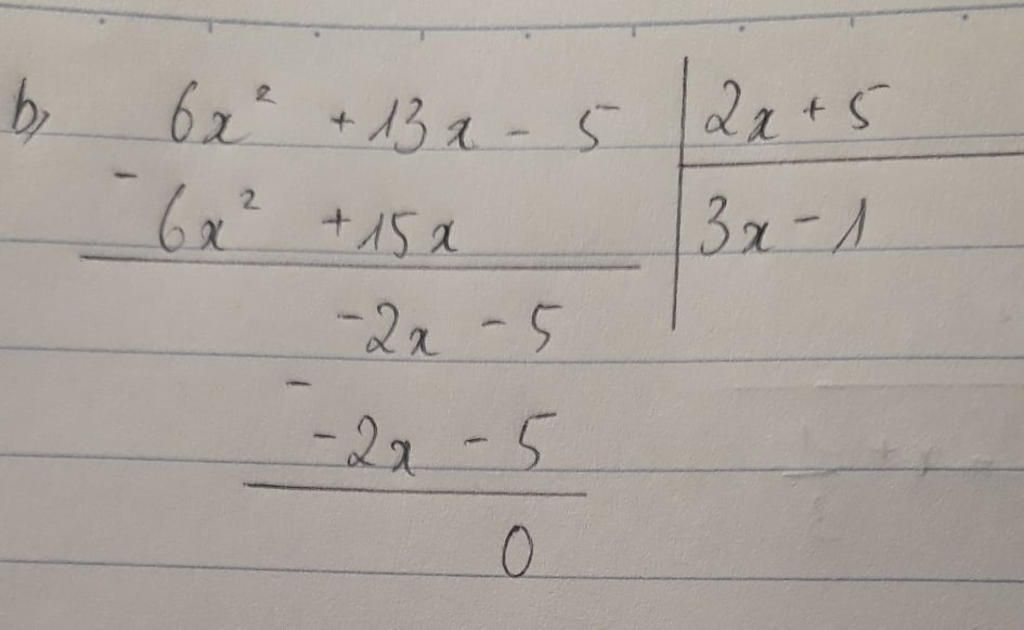 b, 6x² + 13x - 5 | 2x + 5
- 6x² + 15x | 3x - 1
-2x - 5
-
-2x - 5
0